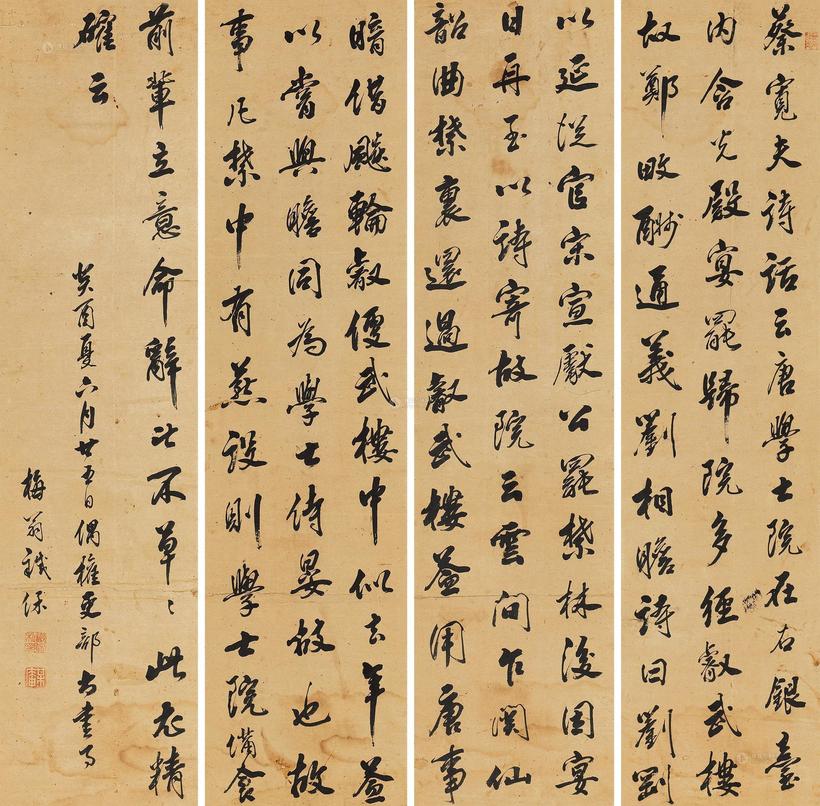 蔡寬夫詩話云唐學士院在右銀臺
内含光殿宴罷歸院多經叡武樓
故鄭畋酬通義劉相瞻詩曰劉剛
以延從官宋宣獻公罷禁林後因宴
日再至以詩寄故院云雲間乍闋仙
韶曲禁裏還過叡武樓蓋用唐事
暗借飈輪叡便武樓中似去年蓋
以嘗與瞻同為學士侍晏故也故
事凡禁中有燕設則學士院備食
前輩立意命辭比不草々此尤精
確云
癸酉夏六月廿五日偶權吏部尚書事
梅翁鐵保